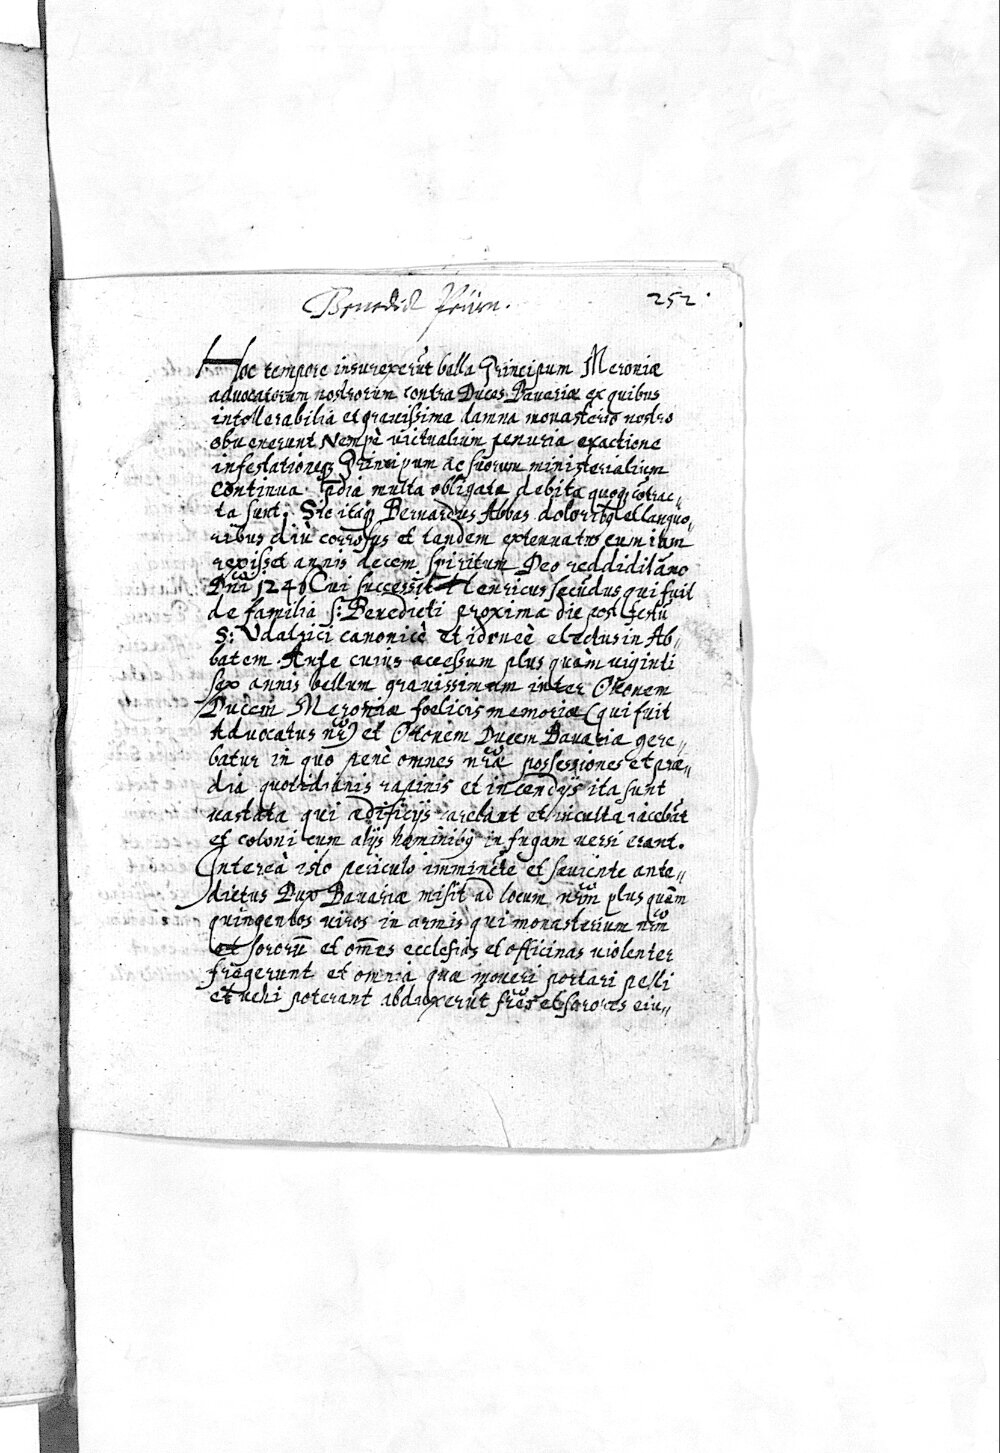 Benedict Peürn.
252.
Hoc tempore insurexerũt bella Principum Meroniæ
advocatorum nostrorum contra Duces Bavariæ ex quibus
intollerabilia et gravissima damna monasterio nostro
obvenerunt Nempè victualium penuria exactione
infestationeq; Principum ac suorum ministerialium
continua p̃dia multa obligata debita quoq; cõtrac„
ta sunt. Sic itaq; Bernardus Abbas dolorib9 et languo„
ribus diù corrosus et tandem extenuatus cum iam
rexisset annis decem spiritum Deo reddidit año
Dñi 1240 Cui successit Henricus secũdus qui fuit
de familia S: Benedicti proxima die post festũ
S: Udalrici canonicè et idoneè electus in Ab„
batem. Ante cuius accessum plus quàm viginti
sex annis bellum gravissimum inter Ottonem
Ducem Meroniæ foelicis memoriæ (qui fuit
Advocatus nr̃) et Ottonem Ducem Bavariæ gere„
batur in quo penè omnes nr̃æ possessiones et præ„
dia quotidianis rapinis et incendijs ita sunt
vastata qui ædificijs carebant et inculta iacebãt
et coloni cum alijs hominib9 in fugam versi erant.
Intereà isto periculo imminẽte et sæviente ante„
dictus Dux Bavariæ misit ad locum nr̃m plus quẽm
quingentos viros in armis qui monasterium nr̃m
et sororũ et om̃es ecclesias et officinas violenter
fregerunt et omnia quæ moveri portari pelli
et vehi poterant abduxerũt fr̃es et sorores eiu„